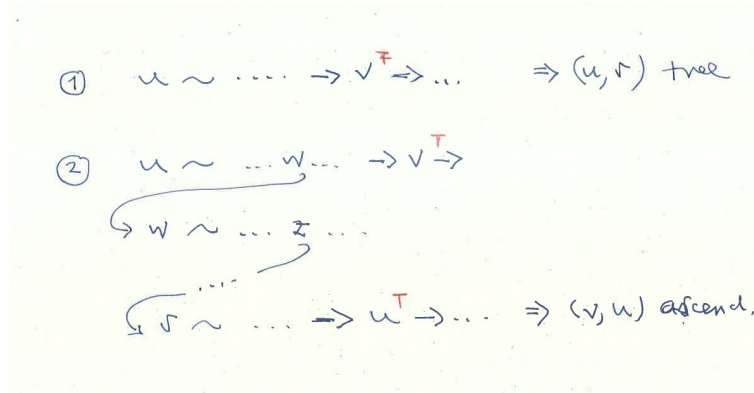 ① u ~ .... → v^F → ... ⇒ (u,v) tree
② u ~ ... w ... → v^T →
w ~ ... z ...
....
v ~ ... → u^T → ... ⇒ (v,u) ascend.